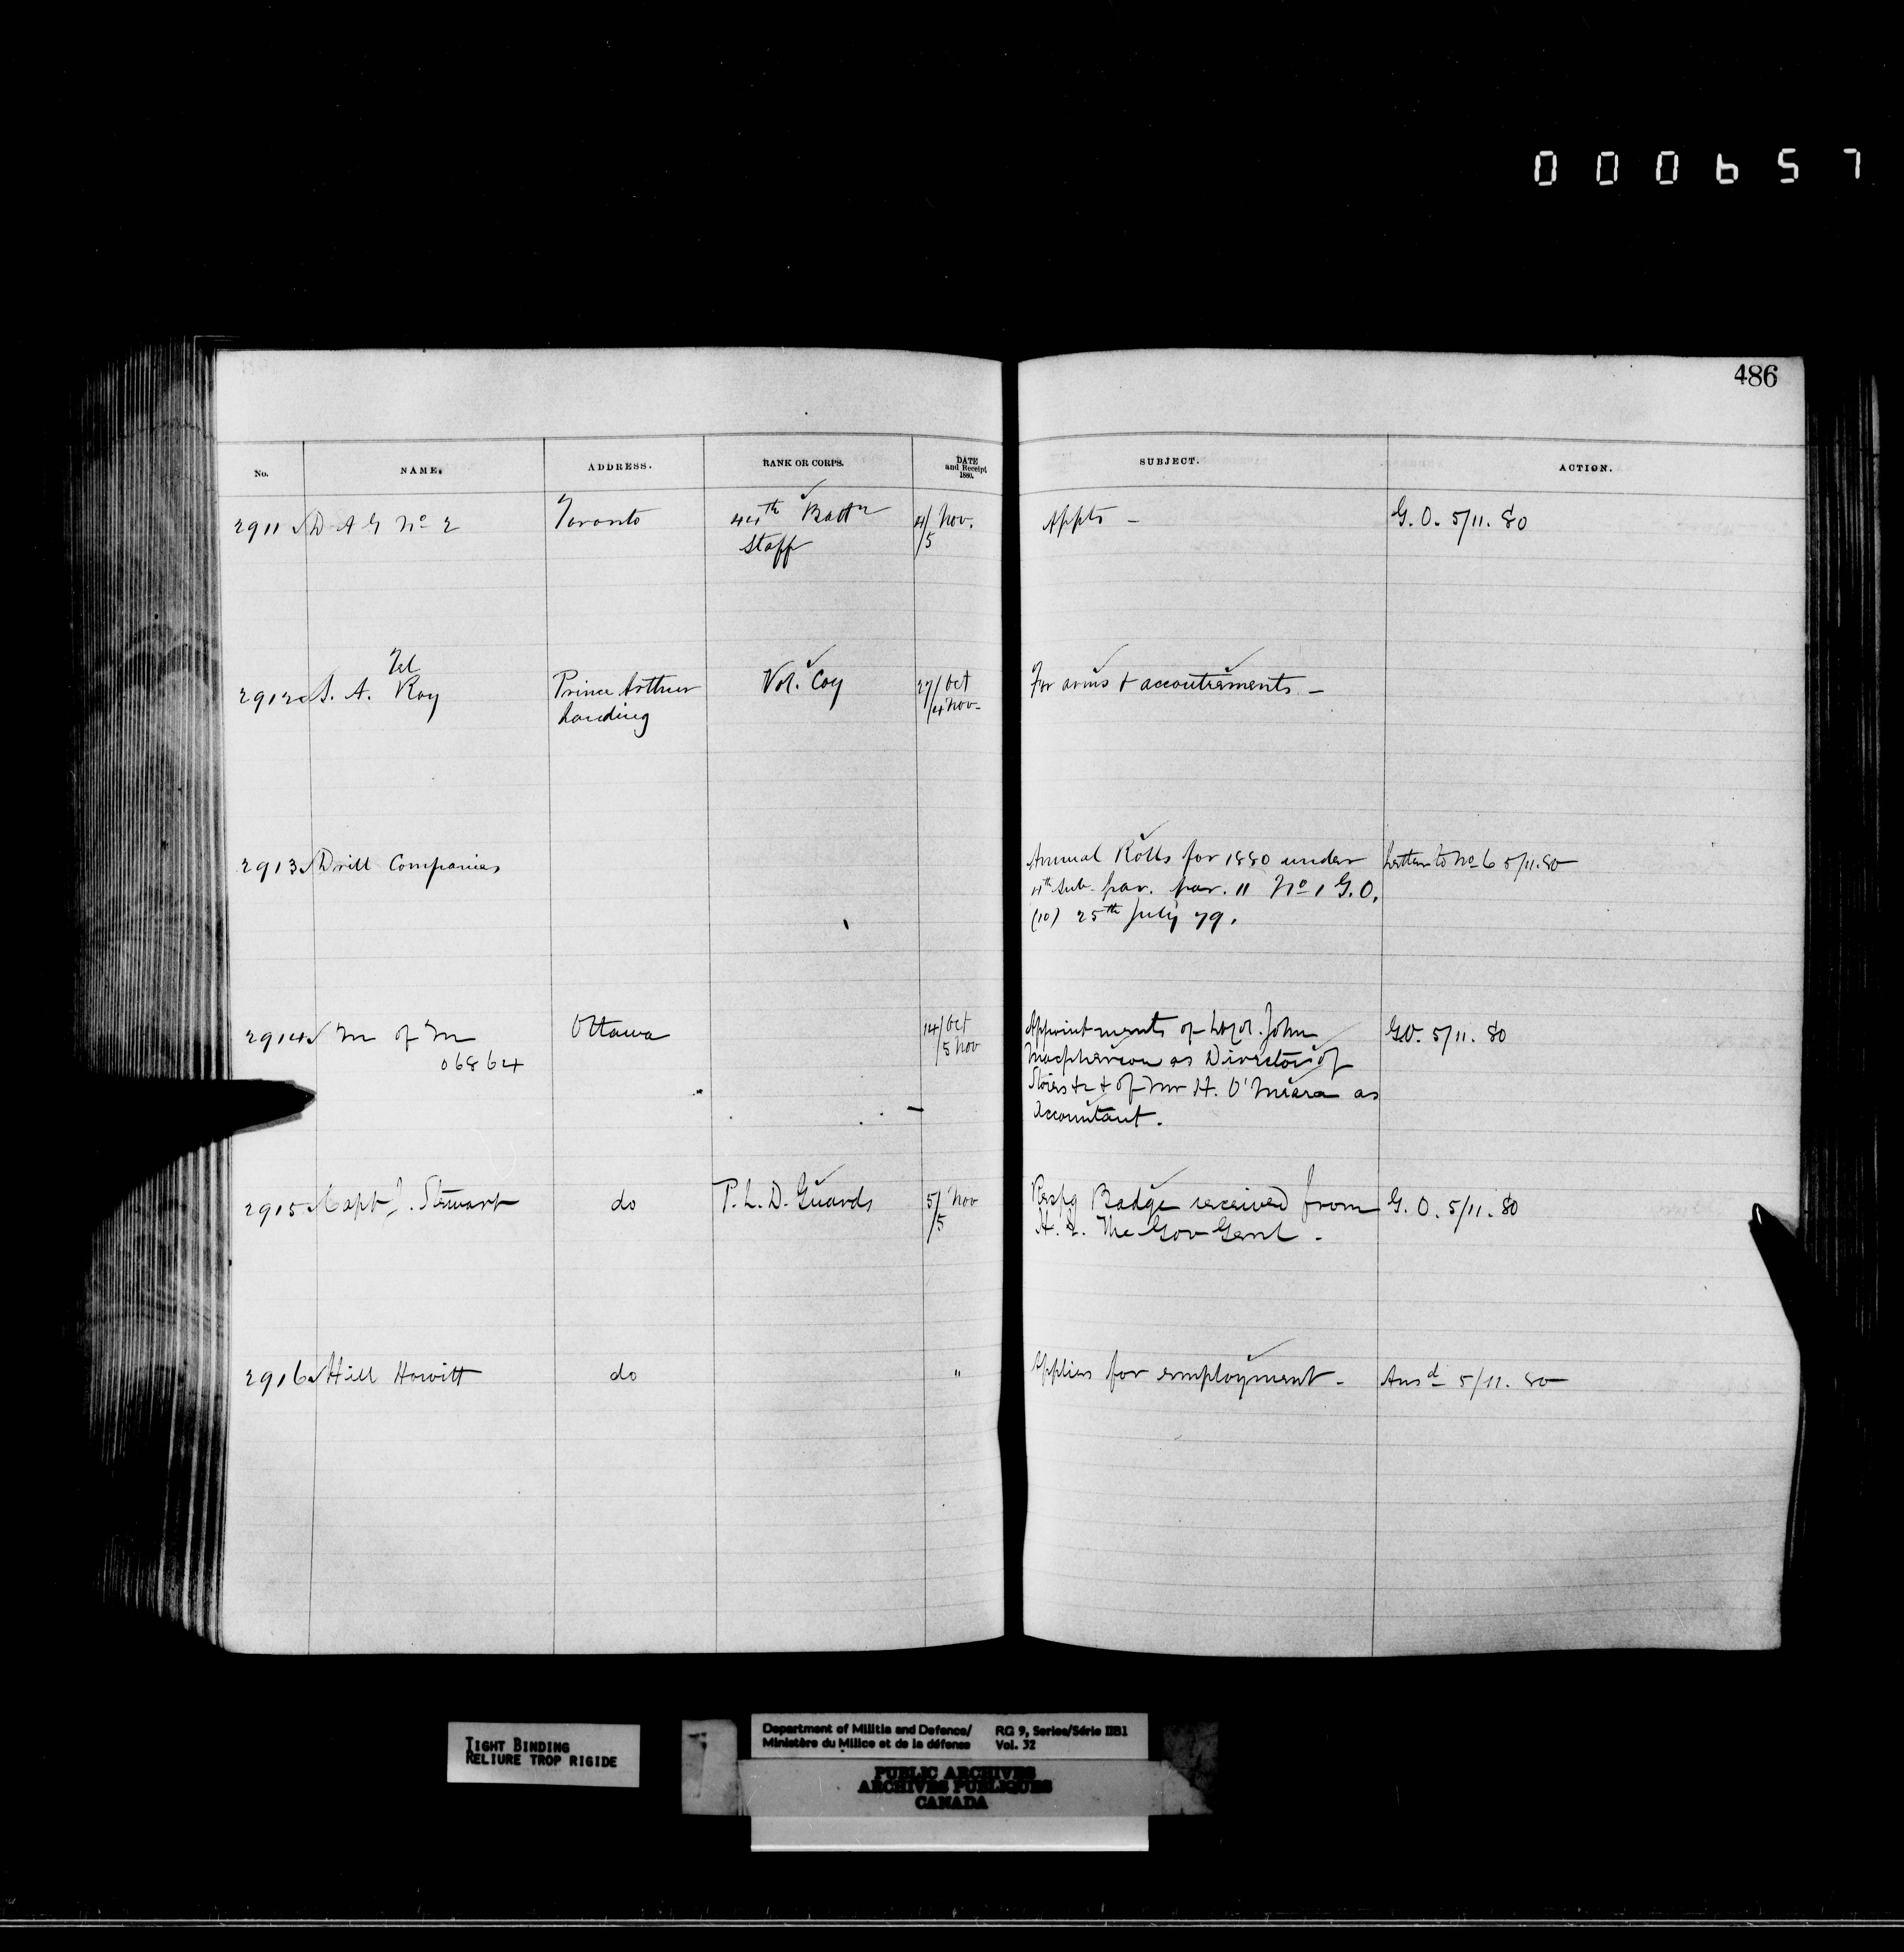 000657
486
No. NAME. ADDRESS. RANK OR CORPS. DATE and Receipt 1880. SUBJECT. ACTION.
2911 D A G No 2 Toronto 44th Battn 4/ Nov. Appts - G. O. 5/11. 80
Staff /5
Tel
2912 S. A. Ray Prince Arthur Vol. Coy 27/Oct For arms & accoutrements -
Landing /4 Nov-
2913 Drill Companies Annual Rolls for 1880 under Letter to No 6 5/11.80
4th sub-par. par. 11 No 1 G.O.
(10) 25th July 79.
2914 M of M Ottawa 14/Oct Appointments of Lt Col. John G.O. 5/11. 80
06864 /5 Nov Macpherson as Director of
Stores &c & of Mr H. O'Meara as
Accountant.
2915 Capt J. Stewart do P. L. D. Guards 5/ Nov Respg Badge received from G. O. 5/11. 80
/5 H. E. The Gov Genl -
2916 Hill Howitt do " Applies for employment - Ansd 5/11. 80
TIGHT BINDING
RELIURE TROP RIGIDE
Department of Militia and Defence/ RG 9, Series/Série IIB1
Ministère du Milice et de la défense Vol. 32
PUBLIC ARCHIVES
ARCHIVES PUBLIQUES
CANADA